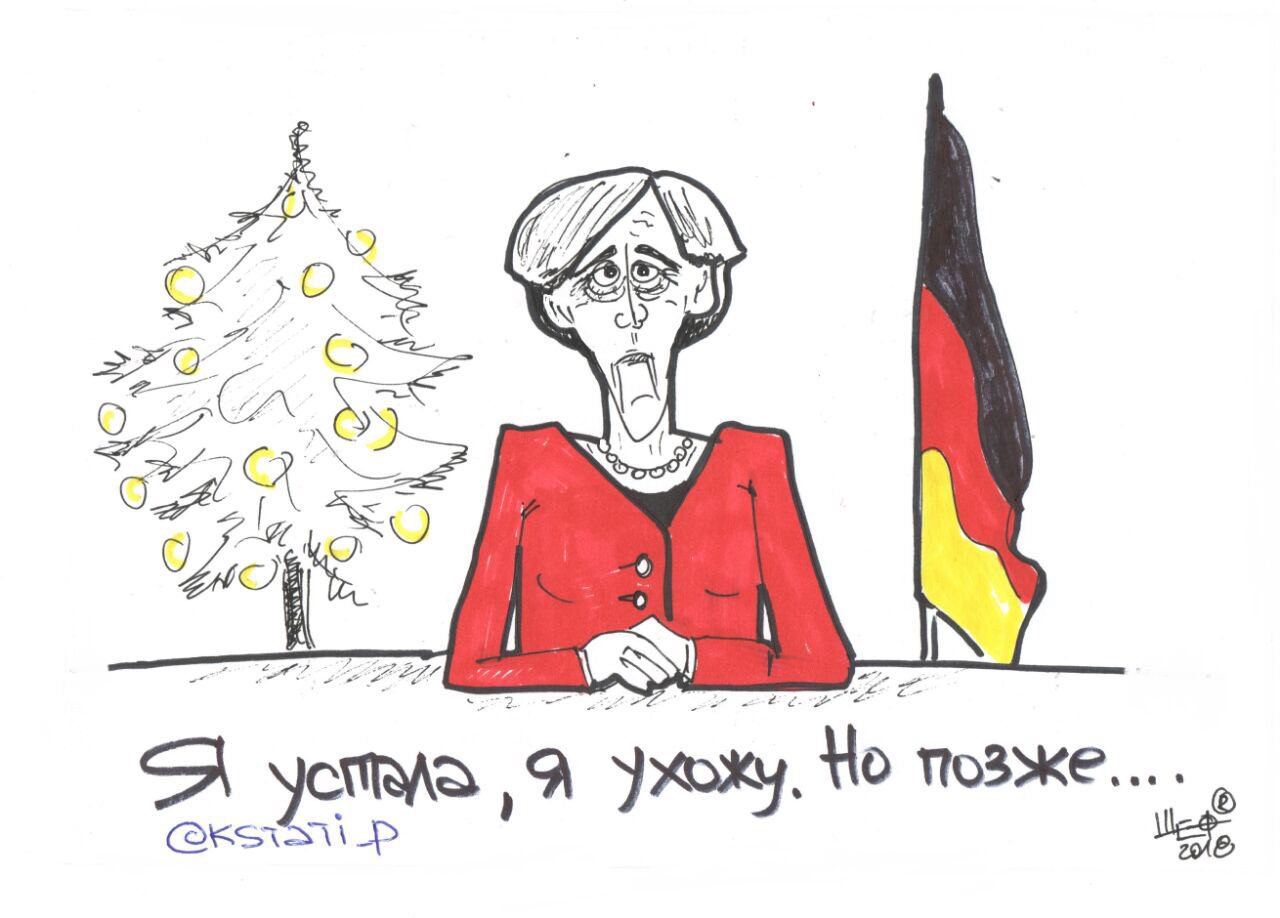 Я устала, я ухожу. Но позже....
@kstati_p
ШЕФ ®
2018